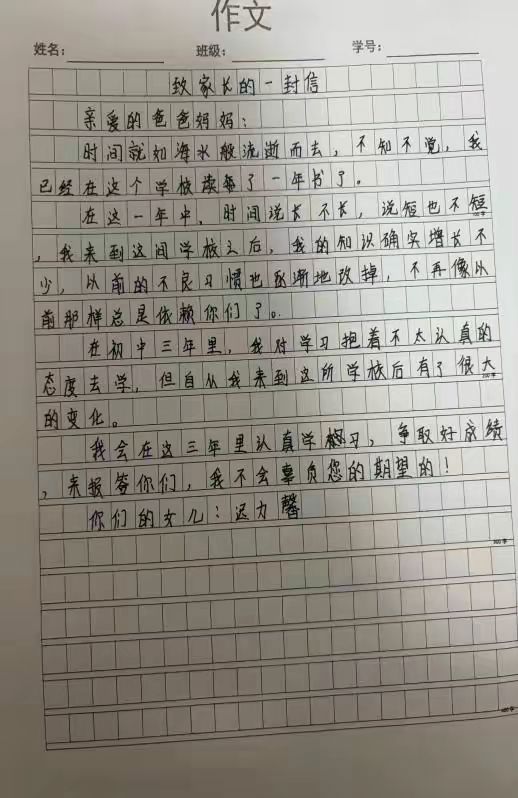 作文
姓名： 班级： 学号：
致家长的一封信
亲爱的爸爸妈妈：
时间就如海水般流逝而去，不知不觉，我
已经在这个学校读了一年书了。
在这一年中，时间说长不长，说短也不短
，我来到这间学校之后，我的知识确实增长不
少，以前的不良习惯也逐渐地改掉，不再像以
前那样总是依赖你们了。
在初中三年里，我对学习抱着不太认真的
态度去学，但自从我来到这所学校后有了很大
的变化。
我会在这三年里认真学习，争取好成绩
，来报答你们，我不会辜负您的期望的！
你们的女儿：迟力馨